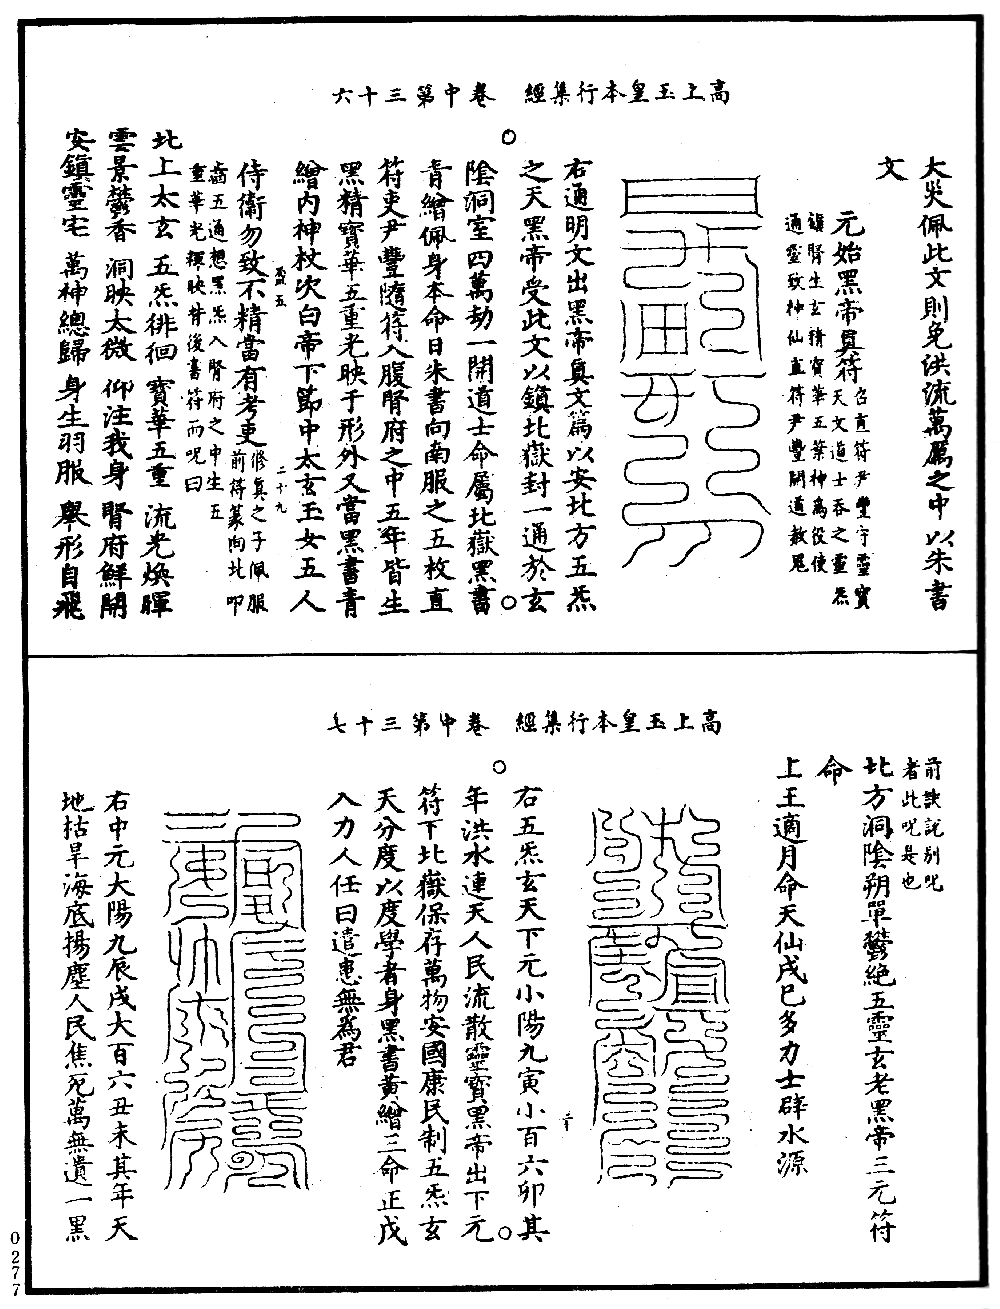 高上玉皇本行集經　卷中第三十六
大災佩此文則免洪流萬厲之中以朱書
文
元始黑帝真符
召直符尹豐守靈寶
天文道士吞之靈炁
鎮腎生玄精寶華五葉神為役使
通靈致神仙直符尹豐開通教鬼
右通明文出黑帝真文篇以安北方五炁
之天黑帝受此文以鎮北嶽封一通於玄
陰洞室四萬劫一開道士命屬北嶽黑書
青繒佩身本命日朱書向南服之五枚直
符吏尹豐隨符入腹腎府之中五年皆生
黑精寶華五重光映于形外又當黑書青
繒內神杖次白帝下節中太玄玉女五人
侍衛勿致不精當有考吏
修真之子佩服
前符篆向北叩
齒五通想黑炁入腎府之中生五
重華光輝映背後書符而呪曰
北上太玄　五炁徘徊　寶華五重　流光煥暉
雲景鬱香　洞映太微　仰注我身　腎府鮮開
安鎮靈宅　萬神總歸　身生羽服　舉形自飛
二十九
高上玉皇本行集經　卷中第三十七
前訣說別呪
者此呪是也
北方洞陰朔單鬱絕五靈玄老黑帝三元符
命
上王適月命天仙戌巳多力士辟水源
右五炁玄天下元小陽九寅小百六卯其
年洪水連天人民流散靈寶黑帝出下元
符下北嶽保存萬物安國康民制五炁玄
天分度以度學者身黑書黃繒三命正戊
入力人任曰遣患無為君
右中元大陽九辰戌大百六丑未其年天
地枯旱海底揚塵人民焦死萬無遺一黑
0277